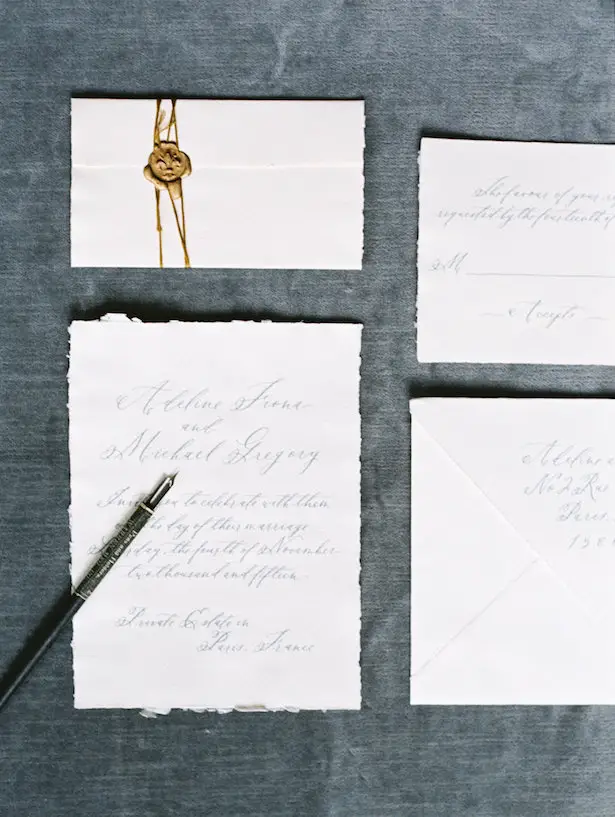 Adeline Fiona
and
Michael Gregory
you to celebrate with them
the day of their marriage
the fourth of November
two thousand and fifteen
Private Estate in
Paris, France
The favour of your
requested by the fourteenth of
M
Accepts
Adeline
No 2 Rue
Paris